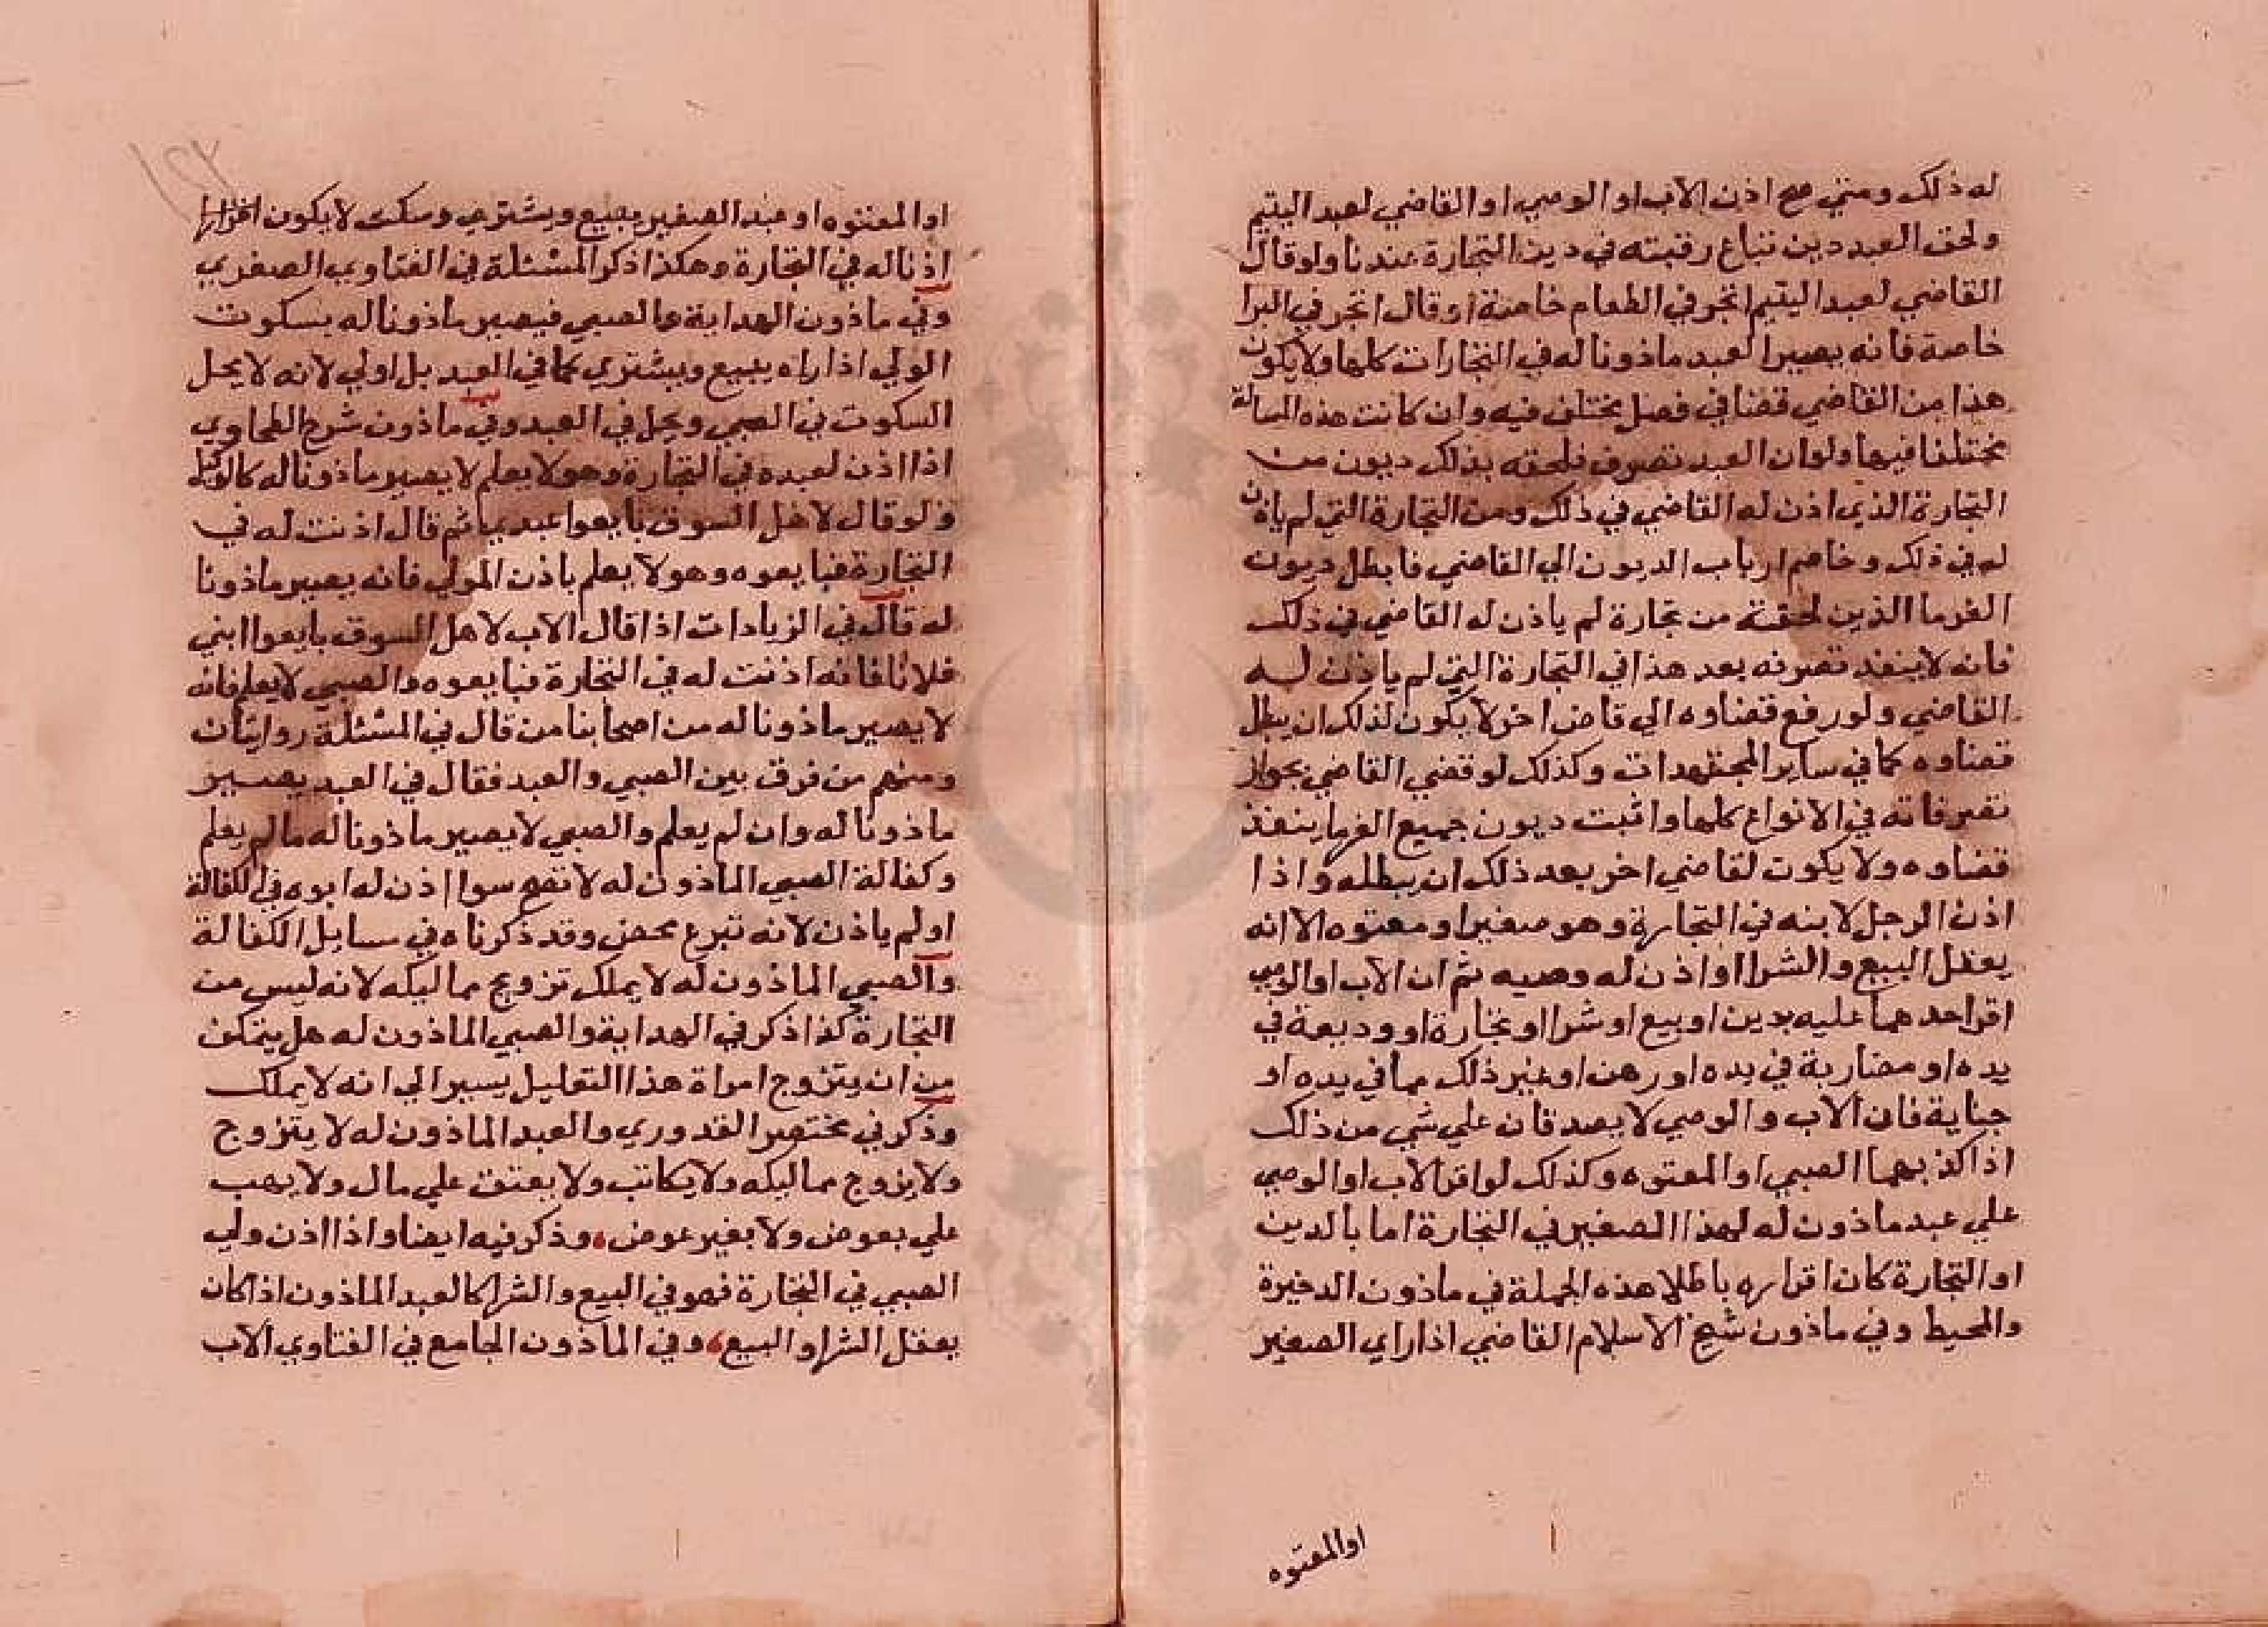 له ذلك ومتي صح اذن الاب او الوصي او القاضي لعبد اليتيم
ولحق العبد دين تباع رقبته في دين التجارة عندنا ولو قال
القاضي لعبد اليتيم اتجر في الطعام خاصة او قال اتجر في البر
خاصة فانه يصير العبد ماذونا له في التجارات كلها ولا يكون
هذا من القاضي قضا في فصل مختلف فيه وان كانت هذه المسالة
مختلفا فيها ولو ان العبد تصرف فلحقه بذلك ديون من
التجارة الذي اذن له القاضي في ذلك ومن التجارة التي لم ياذن
له في ذلك وخاصم ارباب الديون الي القاضي فابطل ديون
الغرما الذين لحقته من تجارة لم ياذن له القاضي في ذلك
فانه لا ينفذ تصرفه بعد هذا في التجارة التي لم ياذن له
القاضي ولو رفع قضاوه الي قاض اخر لا يكون لذلك ان يبطل
قضاوه كما في ساير المجتهدات وكذلك لو قضي القاضي بجواز
تصرفاته في الانواع كلها واثبت ديون جميع الغرما ينفذ
قضاوه ولا يكون لقاضي اخر بعد ذلك ان يبطله واذا
اذن الرجل لابنه في التجارة وهو صغير او معتوه الا انه
يعقل البيع والشرا او اذن له وصيه ثم ان الاب او الوصي
اقر احدهما عليه بدين او بيع او شرا او تجارة او وديعة في
يده او مضاربة في يده او رهن او غير ذلك مما في يده او
جناية فان الاب والوصي لا يصدقان علي شي من ذلك
اذا كذبهما الصبي او المعتوه وكذلك لو اقر الاب او الوصي
علي عبد ماذون له لهذا الصغير في التجارة اما بالدين
او التجارة كان اقراره باطلا هذه الجملة في ماذون الدخيرة
والمحيط وفي ماذون شيخ الاسلام القاضي اذا راي الصغير
او المعتوه
او المعتوه او عبد الصغير يبيع ويشتري وسكت لا يكون
اذنا له في التجارة وهكذا ذكر المسئلة في الفتاوي الصغري
وفي ماذون الهداية والصبي فيصير ماذونا له بسكوت
الولي اذا راه يبيع ويشتري كما في العبد بل اولي لانه لا يحل
السكوت في الصبي ويحل في العبد وفي ماذون شرح الطحاوي
اذا اذن لعبده في التجارة وهو لا يعلم لا يصير ماذونا له كالوكيل
ولو قال لاهل السوق بايعوا عبدي ثم قال اذنت له في
التجارة فبايعوه وهو لا يعلم باذن المولي فانه يصير ماذونا
له قال في الزيادات اذا قال الاب لاهل السوق بايعوا ابني
فلانا فانه اذنت له في التجارة فبايعوه والصبي لا يعلم فانه
لا يصير ماذونا له من اصحابنا من قال في المسئلة روايتان
ومنهم من فرق بين الصبي والعبد فقال في العبد يصير
ماذونا له وان لم يعلم والصبي لا يصير ماذونا له مالم يعلم
وكفالة الصبي الماذون له لا تصح سوا اذن له ابوه في الكفالة
او لم ياذن لانه تبرع محض وقد ذكرناه في مسايل الكفالة
والصبي الماذون له لا يملك تزويج مماليكه لانه ليس من
التجارة كذا ذكر في الهداية والصبي الماذون له هل يتمكن
من ان يتزوج امراة هذا التعليل يسير الي انه لا يملك
وذكر في مختصر القدوري والعبد الماذون له لا يتزوج
ولا يزوج مماليكه ولا يكاتب ولا يعتق علي مال ولا يهب
علي بعوض ولا بغير عوض، وذكر فيه ايضا واذا اذن ولي
الصبي في التجارة فهو في البيع والشرا كالعبد الماذون اذا كان
يعقل الشرا والبيع، وفي الماذون الجامع في الفتاوي الاب